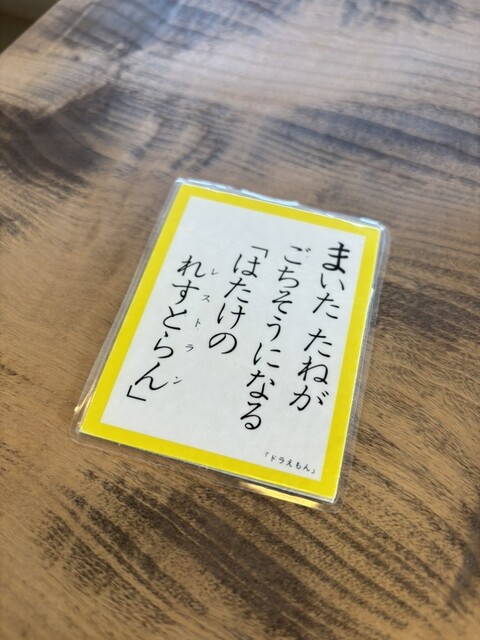 まいた たねが
ごちそうになる
「はたけの
れすとらん」
レストラン
「ドラえもん」